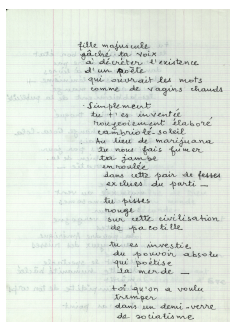 fille majuscule
gâché ta voix
à décréter l'existence
d'un poète
qui ouvrait les mots
comme de vagins chauds
Simplement
tu t'es inventée
rougeoiement élaboré
cambriolé-soleil
Au lieu de marijuana
tu nous fais fumer
ta jambe
enroulée
dans cette pair de fesses
exclues du parti —
tu pisses
rouge
sur cette civilisation
de pacotille
tu es investie
du pouvoir absolu
qui poétise
la merde —
toi qu'on a voulu
tremper
dans un demi-verre
de socialisme